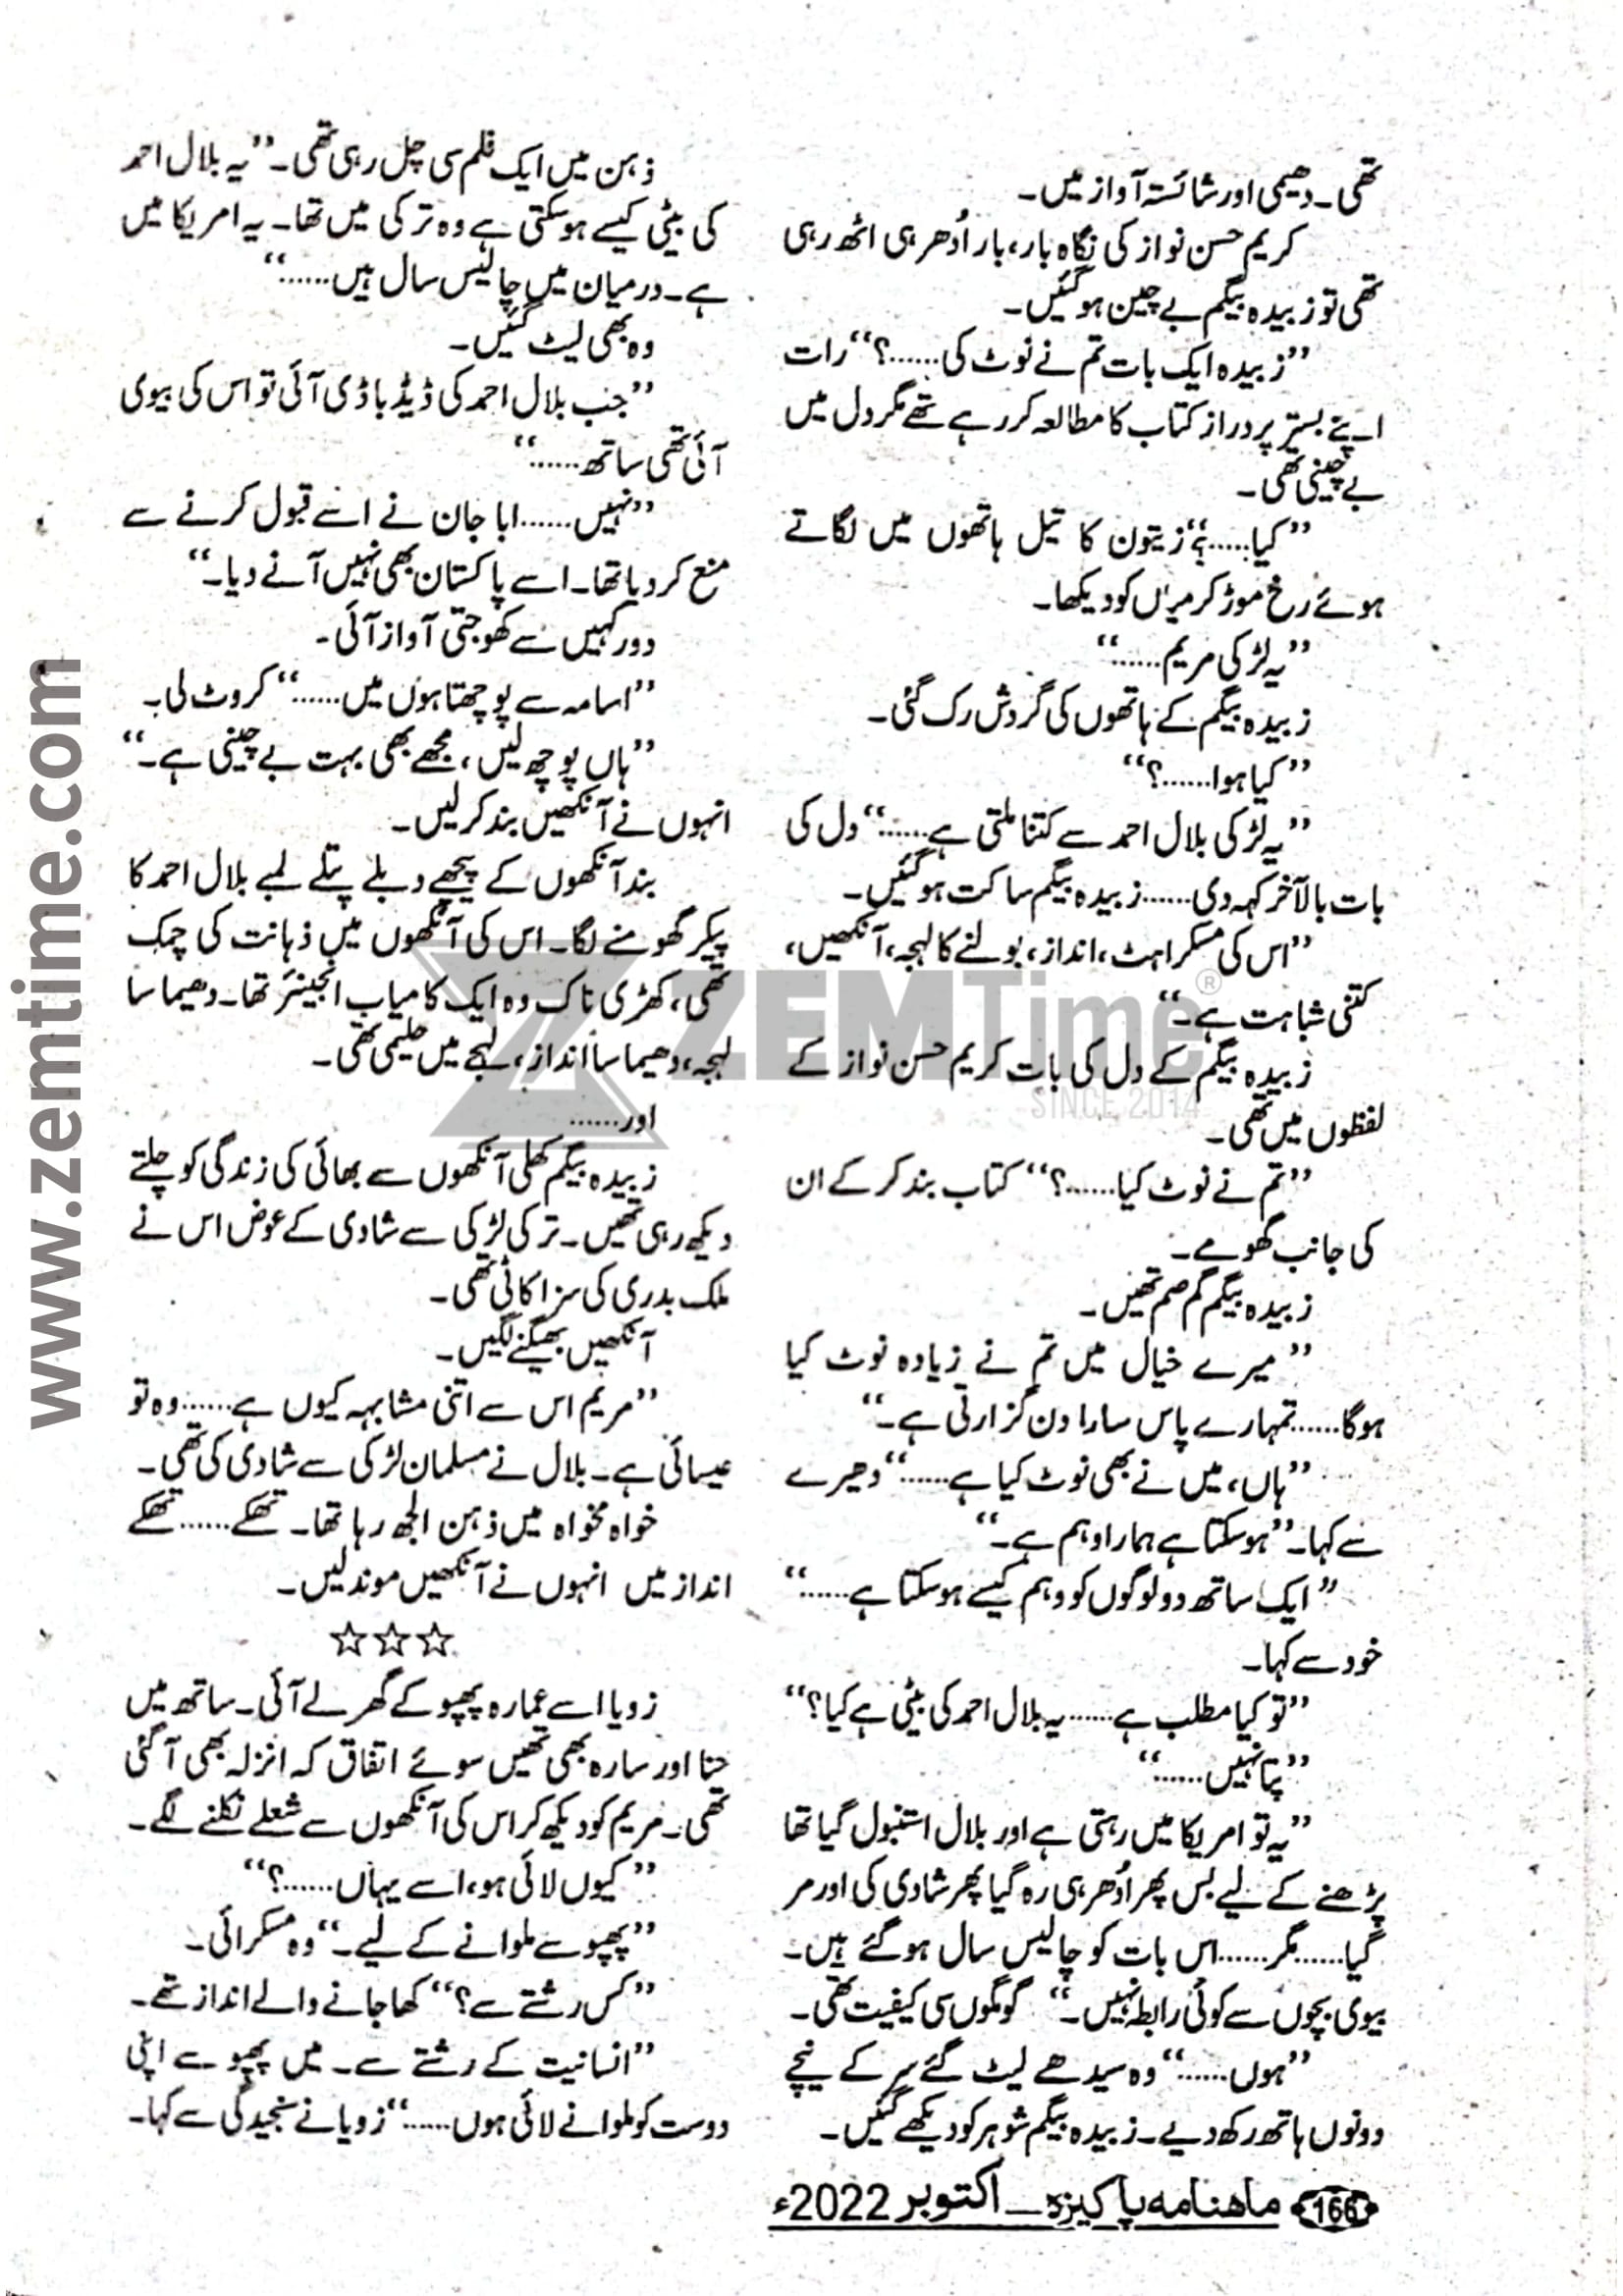 تھی۔ دھیمی اور شائستہ آواز میں۔
کریم حسن نواز کی نگاہ بار، بار اُدھر ہی اٹھ رہی
تھی تو زبیدہ بیگم بے چین ہو گئیں۔
”زبیدہ ایک بات تم نے نوٹ کی......؟“ رات
اپنے بستر پر دراز کتاب کا مطالعہ کر رہے تھے مگر دل میں
بے چینی تھی۔
”کیا.....؟“ زیتون کا تیل ہاتھوں میں لگاتے
ہوئے رخ موڑ کر میاں کو دیکھا۔
”یہ لڑکی مریم......“
زبیدہ بیگم کے ہاتھوں کی گردش رک گئی۔
”کیا ہوا......؟“
”یہ لڑکی بلال احمد سے کتنا ملتی ہے......“ دل کی
بات بالآخر کہہ دی......زبیدہ بیگم ساکت ہو گئیں۔
”اس کی مسکراہٹ، انداز، بولنے کا لہجہ، آنکھیں،
کتنی شباہت ہے۔“
زبیدہ بیگم کے دل کی بات کریم حسن نواز کے
لفظوں میں تھی۔
”تم نے نوٹ کیا......؟“ کتاب بند کر کے ان
کی جانب گھومے۔
زبیدہ بیگم گم صم تھیں۔
”میرے خیال میں تم نے زیادہ نوٹ کیا
ہوگا......تمہارے پاس سارا دن گزارتی ہے۔“
”ہاں، میں نے بھی نوٹ کیا ہے......“ دھیرے
سے کہا۔ ”ہو سکتا ہے ہمارا وہم ہے۔“
”ایک ساتھ دو لوگوں کو وہم کیسے ہو سکتا ہے......“
خود سے کہا۔
”تو کیا مطلب ہے......یہ بلال احمد کی بیٹی ہے کیا؟“
”پتا نہیں......“
”یہ تو امریکا میں رہتی ہے اور بلال استنبول گیا تھا
پڑھنے کے لیے بس پھر اُدھر ہی رہ گیا پھر شادی کی اور مر
گیا......مگر......اس بات کو چالیس سال ہو گئے ہیں۔
بیوی بچوں سے کوئی رابطہ نہیں۔“ گومگوں سی کیفیت تھی۔
”ہوں......“ وہ سیدھے لیٹ گئے سر کے نیچے
دونوں ہاتھ رکھ دیے۔ زبیدہ بیگم شوہر کو دیکھے گئیں۔
ذہن میں ایک فلم سی چل رہی تھی۔ ”یہ بلال احمد
کی بیٹی کیسے ہو سکتی ہے وہ ترکی میں تھا۔ یہ امریکا میں
ہے۔ درمیان میں چالیس سال ہیں......“
وہ بھی لیٹ گئیں۔
”جب بلال احمد کی ڈیڈ باڈی آئی تو اس کی بیوی
آئی تھی ساتھ......“
”نہیں......ابا جان نے اسے قبول کرنے سے
منع کر دیا تھا۔ اسے پاکستان بھی نہیں آنے دیا۔“
دور کہیں سے کھوجتی آواز آئی۔
”اسامہ سے پوچھتا ہوں میں......“ کروٹ لی۔
”ہاں پوچھ لیں، مجھے بھی بہت بے چینی ہے۔“
انہوں نے آنکھیں بند کر لیں۔
بند آنکھوں کے پیچھے دبلے پتلے لمبے بلال احمد کا
پیکر گھومنے لگا۔ اس کی آنکھوں میں ذہانت کی چمک
تھی، کھڑی ناک وہ ایک کامیاب انجینئر تھا۔ دھیما سا
لہجہ، دھیما سا انداز، لہجے میں حلیمی تھی۔
اور......
زبیدہ بیگم کھلی آنکھوں سے بھائی کی زندگی کو چلتے
دیکھ رہی تھیں۔ ترکی لڑکی سے شادی کے عوض اس نے
ملک بدری کی سزا کاٹی تھی۔
آنکھیں بھیگنے لگیں۔
”مریم اس سے اتنی مشابہہ کیوں ہے......وہ تو
عیسائی ہے۔ بلال نے مسلمان لڑکی سے شادی کی تھی۔
خواہ مخواہ میں ذہن الجھ رہا تھا۔ تھکے......تھکے
انداز میں انہوں نے آنکھیں موند لیں۔
☆☆☆
زویا اسے عمارہ پھپو کے گھر لے آئی۔ ساتھ میں
حنا اور سارہ بھی تھیں سوئے اتفاق کہ انزلہ بھی آ گئی
تھی۔ مریم کو دیکھ کر اس کی آنکھوں سے شعلے نکلنے لگے۔
”کیوں لائی ہو، اسے یہاں......؟“
”پھپو سے ملوانے کے لیے۔“ وہ مسکرائی۔
”کس رشتے سے؟“ کھا جانے والے انداز تھے۔
”انسانیت کے رشتے سے۔ میں پھپو سے اپنی
دوست کو ملوانے لائی ہوں......“ زویا نے سنجیدگی سے کہا۔
166 ماہنامہ پاکیزہ۔ اکتوبر 2022ء
www.zemtime.com
ZEMTime®
SINCE 2014